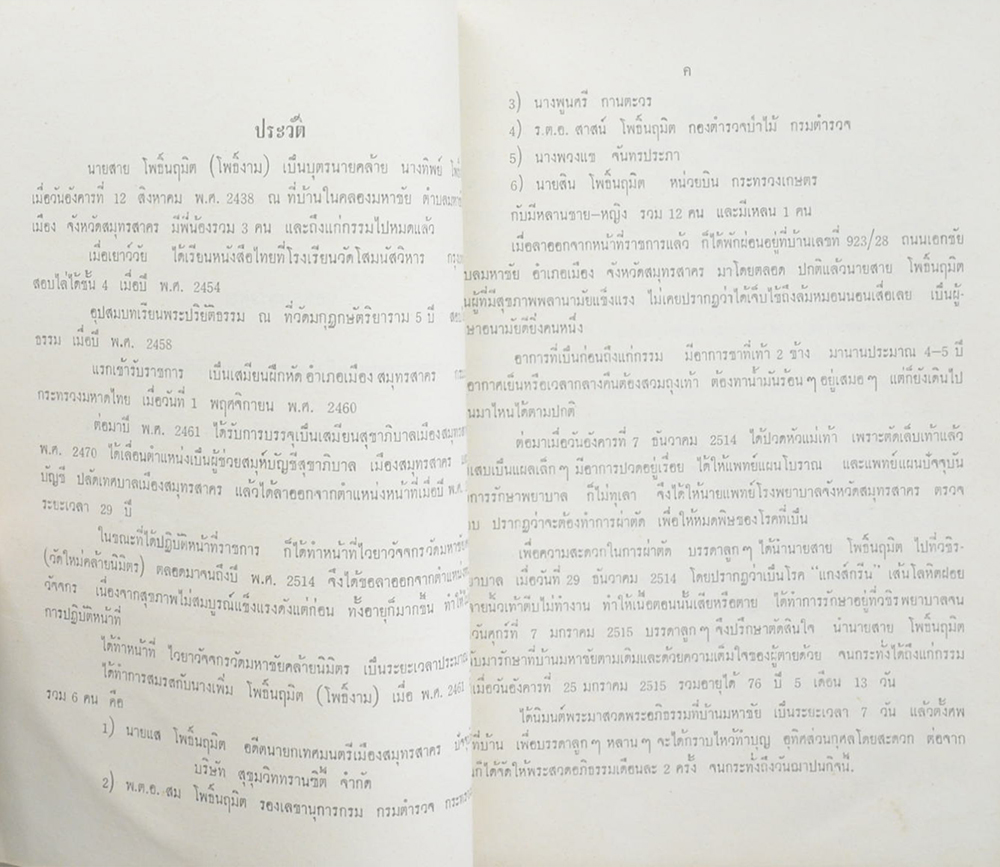 ประวัติ
นายสาย โพธิ์นฤมิต (โพธิ์งาม) เป็นบุตรนายคล้าย นางทิพย์
เมื่อวันอังคารที่ 12 สิงหาคม พ.ศ. 2438 ณ ที่บ้านในคลองมหาชัย
เมือง จังหวัดสมุทรสาคร มีพี่น้องรวม 3 คน และถึงแก่กรรมไปหมดแล้ว
เมื่อเยาว์วัย ได้เรียนหนังสือไทยที่โรงเรียนวัดโสมนัสวิหาร
สอบไล่ได้ชั้น 4 เมื่อปี พ.ศ. 2454
อุปสมบทเรียนพระปริยัติธรรม ณ ที่วัดมกุฎกษัตริยาราม 5 ปี
ธรรม เมื่อปี พ.ศ. 2458
แรกเข้ารับราชการ เป็นเสมียนฝึกหัด อำเภอเมือง สมุทรสาคร
กระทรวงมหาดไทย เมื่อวันที่ 1 พฤศจิกายน พ.ศ. 2460
ต่อมาปี พ.ศ. 2461 ได้รับการบรรจุเป็นเสมียนสุขาภิบาลเมือง
พ.ศ. 2470 ได้เลื่อนตำแหน่งเป็นผู้ช่วยสมุห์บัญชีสุขาภิบาล เมืองสมุทรสาคร
บัญชี ปลัดเทศบาลเมืองสมุทรสาคร แล้วได้ลาออกจากตำแหน่งหน้าที่เมื่อปี พ.ศ.
ระยะเวลา 29 ปี
ในขณะที่ได้ปฏิบัติหน้าที่ราชการ ก็ได้ทำหน้าที่ไวยาวัจจกรวัดมหาชัย
(วัดใหม่คล้ายนิมิตร) ตลอดมาจนถึงปี พ.ศ. 2514 จึงได้ขอลาออกจากตำแหน่ง
วัจจกร เนื่องจากสุขภาพไม่สมบูรณ์แข็งแรงดังแต่ก่อน ทั้งอายุก็มากขึ้น
การปฏิบัติหน้าที่
ได้ทำหน้าที่ ไวยาวัจจกรวัดมหาชัยคล้ายนิมิตร เป็นระยะเวลาประมาณ
ได้ทำการสมรสกับนางเพิ่ม โพธิ์นฤมิต (โพธิ์งาม) เมื่อ พ.ศ. 2461
รวม 6 คน คือ
1) นายแส โพธิ์นฤมิต อดีตนายกเทศมนตรีเมืองสมุทรสาคร
บริษัท สุขุมวิททรานซิต์ จำกัด
2) พ.ต.อ. สม โพธิ์นฤมิต รองเลขานุการกรม กรมตำรวจ
ค
3) นางพูนศรี กานตะวร
4) ร.ต.อ. สาสน์ โพธิ์นฤมิต กองตำรวจป่าไม้ กรมตำรวจ
5) นางพวงแข จันทรประภา
6) นายสิน โพธิ์นฤมิต หน่วยบิน กระทรวงเกษตร
กับมีหลานชาย-หญิง รวม 12 คน และมีเหลน 1 คน
เมื่อลาออกจากหน้าที่ราชการแล้ว ก็ได้พักผ่อนอยู่ที่บ้านเลขที่ 923/28 ถนนเอกชัย
บลมหาชัย อำเภอเมือง จังหวัดสมุทรสาคร มาโดยตลอด ปกติแล้วนายสาย โพธิ์นฤมิต
นผู้ที่มีสุขภาพพลานามัยแข็งแรง ไม่เคยปรากฏว่าได้เจ็บไข้ถึงล้มหมอนนอนเสื่อเลย เป็นผู้-
ษาอนามัยดียิ่งคนหนึ่ง
อาการที่เป็นก่อนถึงแก่กรรม มีอาการชาที่เท้า 2 ข้าง มานานประมาณ 4-5 ปี
อากาศเย็นหรือเวลากลางคืนต้องสวมถุงเท้า ต้องทาน้ำมันร้อน ๆ อยู่เสมอ ๆ แต่ก็ยังเดินไป
นมาไหนได้ตามปกติ
ต่อมาเมื่อวันอังคารที่ 7 ธันวาคม 2514 ได้ปวดหัวแม่เท้า เพราะตัดเล็บเท้าแล้ว
เสบเป็นแผลเล็ก ๆ มีอาการปวดอยู่เรื่อย ได้ให้แพทย์แผนโบราณ และแพทย์แผนปัจจุบัน
การรักษาพยาบาล ก็ไม่ทุเลา จึงได้ให้นายแพทย์โรงพยาบาลจังหวัดสมุทรสาคร ตรวจ
บ ปรากฏว่าจะต้องทำการผ่าตัด เพื่อให้หมดพิษของโรคที่เป็น
เพื่อความสะดวกในการผ่าตัด บรรดาลูก ๆ ได้นำนายสาย โพธิ์นฤมิต ไปที่วชิร-
ยาบาล เมื่อวันที่ 29 ธันวาคม 2514 โดยปรากฏว่าเป็นโรค "แกงส์กรีน" เส้นโลหิตฝอย
ายนิ้วเท้าตีบไม่ทำงาน ทำให้เนื้อตอนนั้นเสียหรือตาย ได้ทำการรักษาอยู่ที่วชิรพยาบาลจน
วันศุกร์ที่ 7 มกราคม 2515 บรรดาลูก ๆ จึงปรึกษาตัดสินใจ นำนายสาย โพธิ์นฤมิต
ับมารักษาที่บ้านมหาชัยตามเดิมและด้วยความเต็มใจของผู้ตายด้วย จนกระทั่งได้ถึงแก่กรรม
เมื่อวันอังคารที่ 25 มกราคม 2515 รวมอายุได้ 76 ปี 5 เดือน 13 วัน
ได้นิมนต์พระมาสวดพระอภิธรรมที่บ้านมหาชัย เป็นระยะเวลา 7 วัน แล้วตั้งศพ
ที่บ้าน เพื่อบรรดาลูก ๆ หลาน ๆ จะได้กราบไหว้ทำบุญ อุทิศส่วนกุศลโดยสะดวก ต่อจาก
ก็ได้จัดให้พระสวดอภิธรรมเดือนละ 2 ครั้ง จนกระทั่งถึงวันฌาปนกิจนี้.